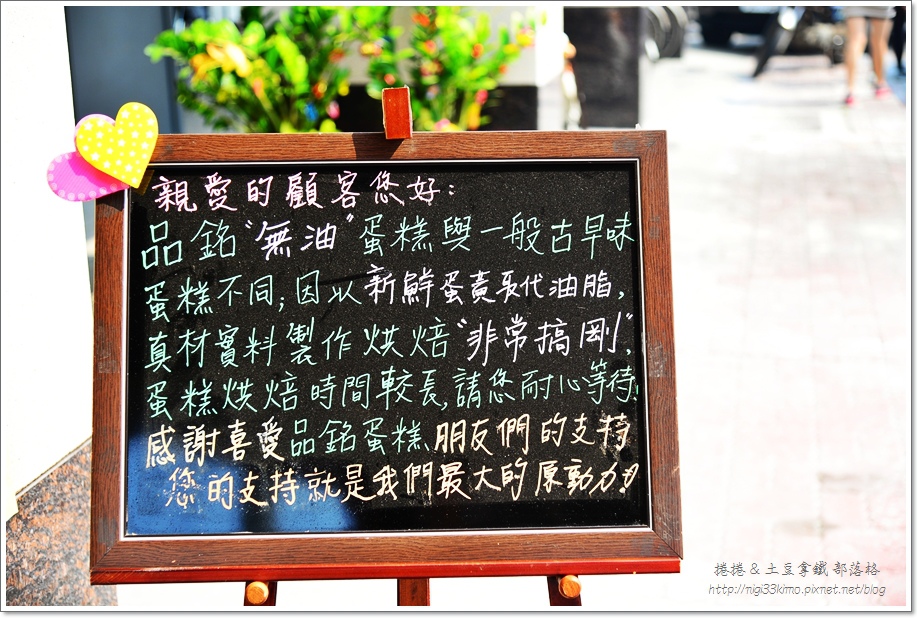 親愛的顧客您好:
品銘"無油"蛋糕與一般古早味
蛋糕不同;因以新鮮蛋黃代油脂,
真材實料製作烘焙"非常搞剛",
蛋糕烘焙時間較長,請您耐心等待!
感謝喜愛品銘蛋糕朋友們的支持
您的支持就是我們最大的原動力!
捲捲 & 土豆拿鐵 部落格
http://nigi33kimo.pixnet.net/blog